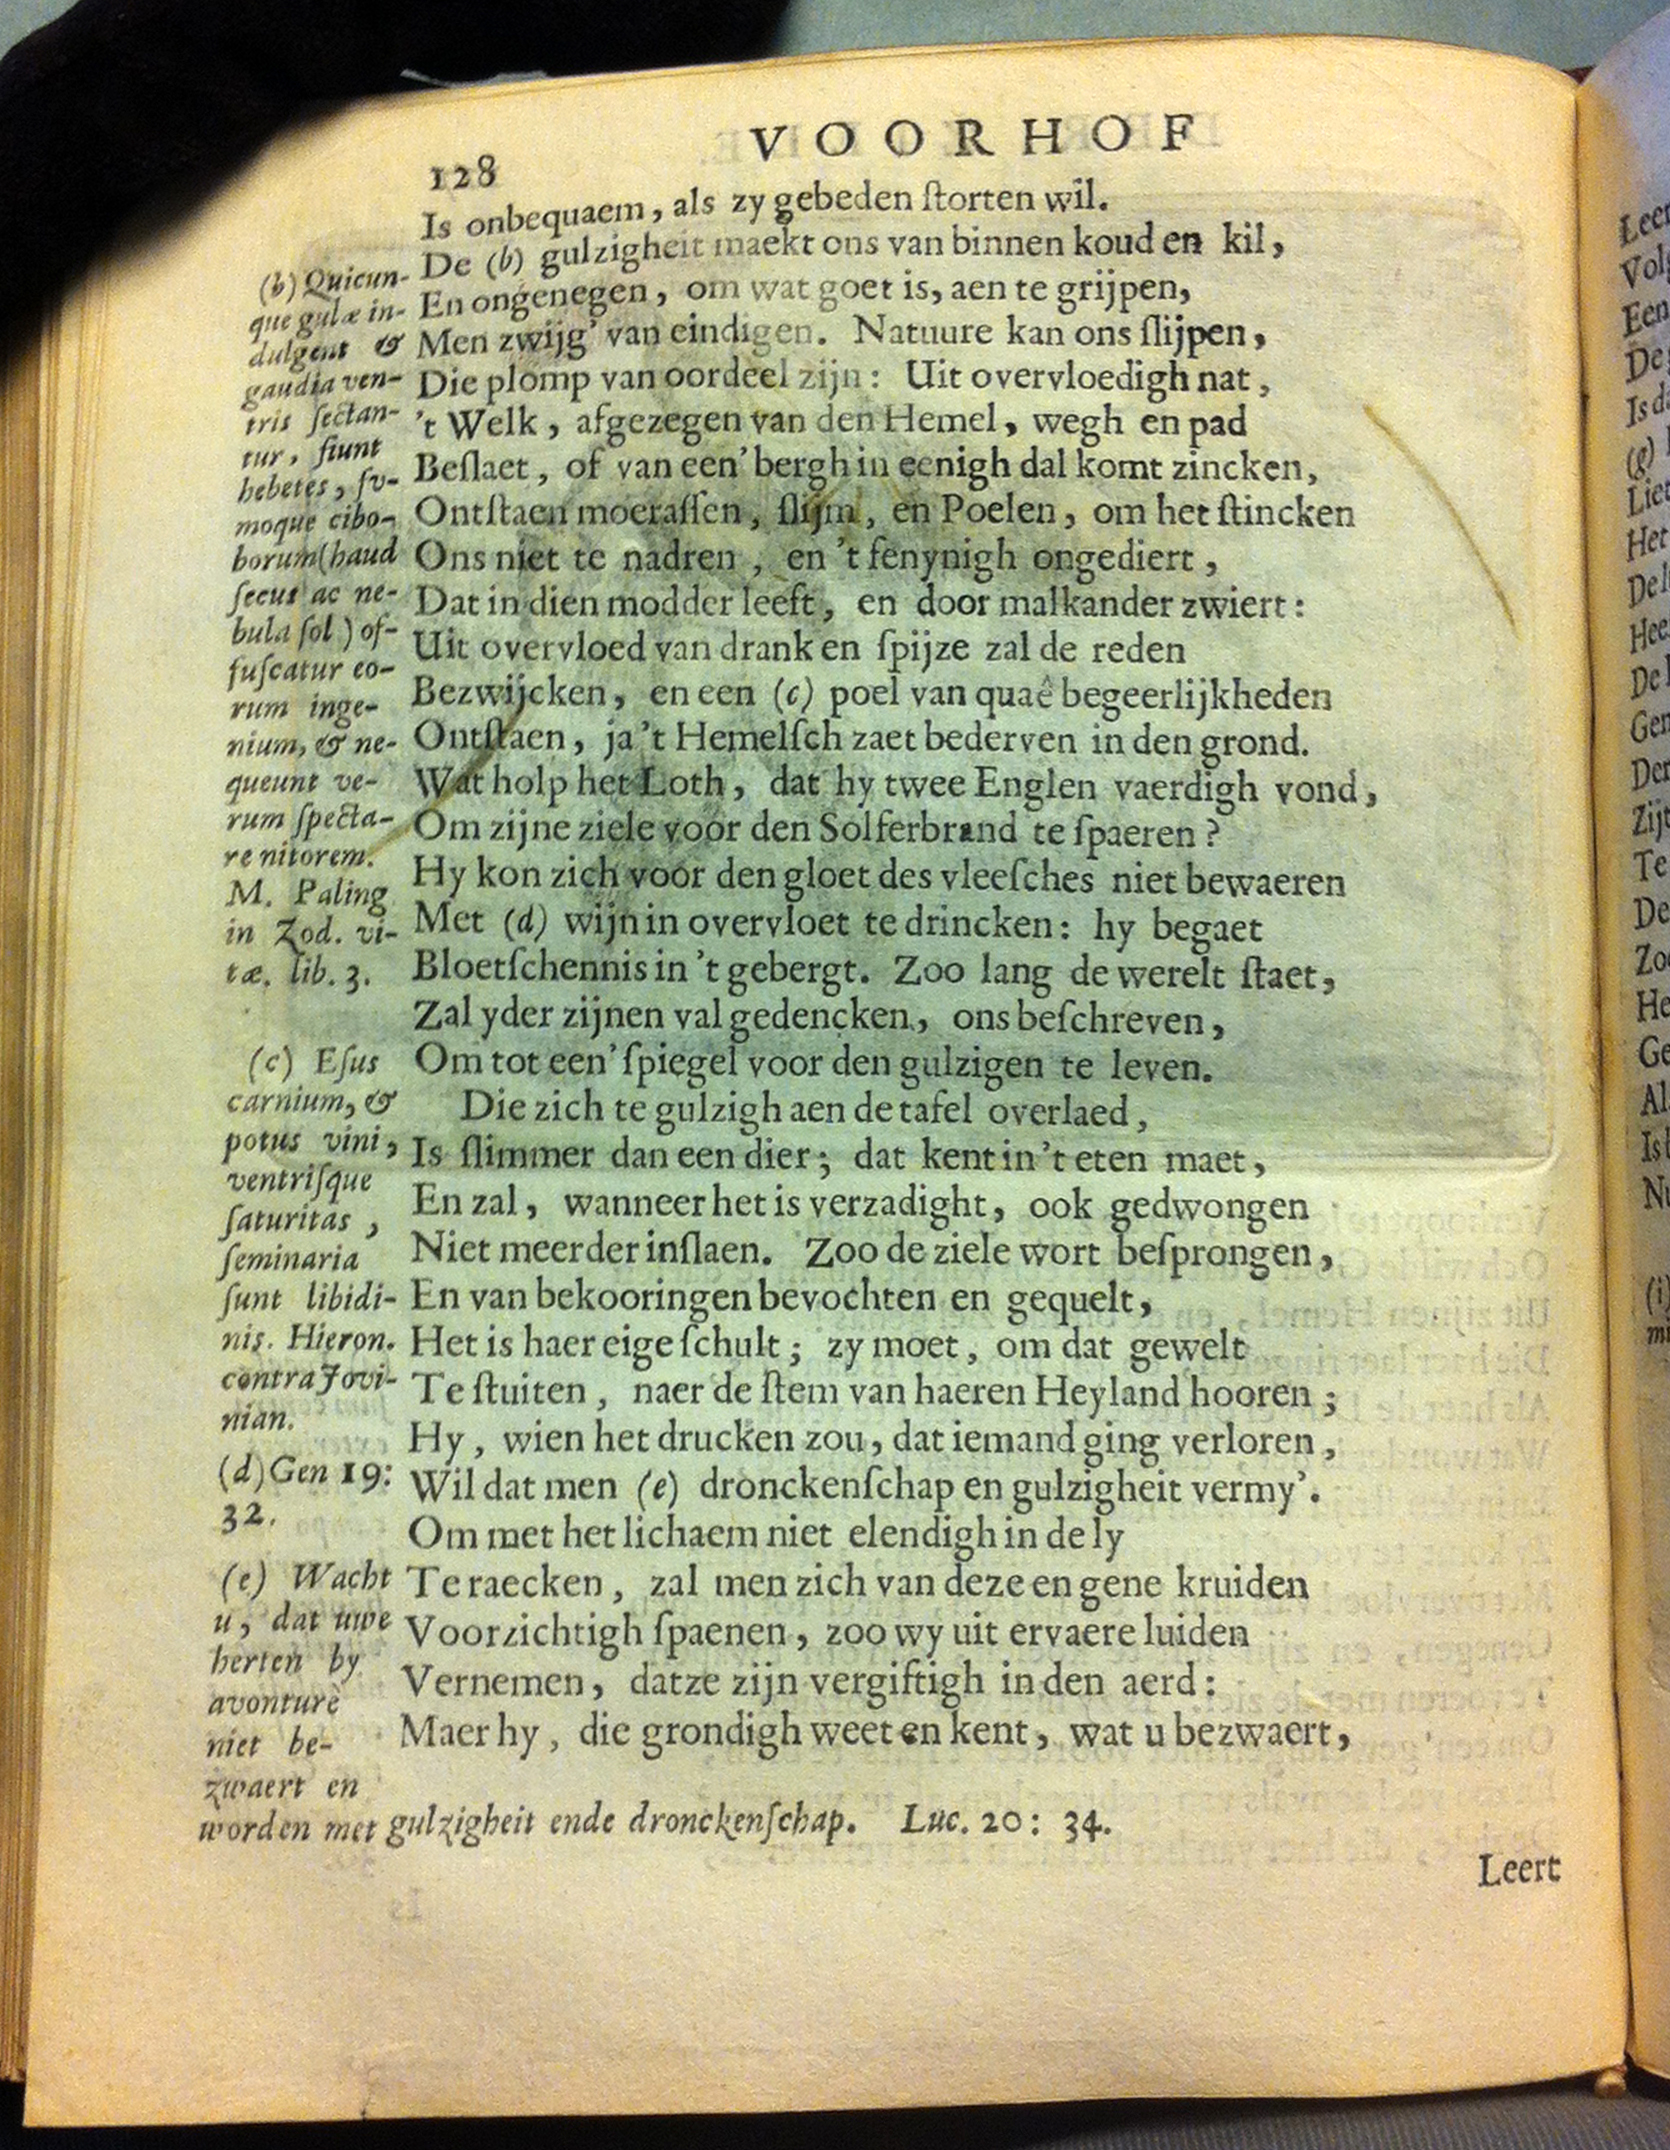 VOORHOF
128
Is onbequaem, als zy gebeden ſtorten wil.
De (b) gulzigheit maekt ons van binnen koud en kil,
En ongenegen, om wat goet is, aen te grijpen,
Men zwijg' van eindigen. Natuure kan ons ſlijpen,
Die plomp van oordeel zijn: Uit overvloedigh nat,
't Welk, afgezegen van den Hemel, wegh en pad
Beſlaet, of van een' bergh in eenigh dal komt zincken,
Ontſtaen moeraſſen, ſlijm, en Poelen, om het ſtincken
Ons niet te nadren, en 't fenynigh ongediert,
Dat in dien modder leeft, en door malkander zwiert:
Uit overvloed van drank en ſpijze zal de reden
Bezwijcken, en een (c) poel van quaê begeerlijkheden
Ontſtaen, ja 't Hemelſch zaet bederven in den grond.
Wat holp het Loth, dat hy twee Englen vaerdigh vond,
Om zijne ziele voor den Solferbrand te ſpaeren?
Hy kon zich voor den gloet des vleeſches niet bewaeren
Met (d) wijn in overvloet te drincken: hy begaet
Bloetſchennis in 't gebergt. Zoo lang de werelt ſtaet,
Zal yder zijnen val gedencken, ons beſchreven,
Om tot een' ſpiegel voor den gulzigen te leven.
Die zich te gulzigh aen de tafel overlaed,
Is ſlimmer dan een dier; dat kent in 't eten maet,
En zal, wanneer het is verzadight, ook gedwongen
Niet meerder inſlaen. Zoo de ziele wort beſprongen,
En van bekooringen bevochten en gequelt,
Het is haer eige ſchult; zy moet, om dat gewelt
Te ſtuiten, naer de ſtem van haeren Heyland hooren;
Hy, wien het drucken zou, dat iemand ging verloren,
Wil dat men (e) dronckenſchap en gulzigheit vermy'.
Om met het lichaem niet elendigh in de ly
Te raecken, zal men zich van deze en gene kruiden
Voorzichtigh ſpaenen, zoo wy uit ervaere luiden
Vernemen, datze zijn vergiftigh in den aerd:
Maer hy, die grondigh weet en kent, wat u bezwaert,
(b) Quicun-
que gulæ in-
dulgent &
gaudia ven-
tris ſectan-
tur, fiunt
hebetes, fu-
moque cibo-
borum (haud
ſecus ac ne-
bula ſol) of-
fuſcatur eo-
rum inge-
nium, & ne-
queunt ve-
rum ſpecta-
re nitorem.
M. Paling
in Zod. vi-
tæ. lib. 3.
(c) Eſus
carnium, &
potus vini,
ventriſque
ſaturitas,
ſeminaria
ſunt libidi-
nis. Hieron.
contra Jovi-
nian.
(d) Gen 19:
32.
(e) Wacht
u, dat uwe
herten by
avonture
niet be-
zwaert en
worden met gulzigheit ende dronckenſchap. Luc. 20: 34.
Leert